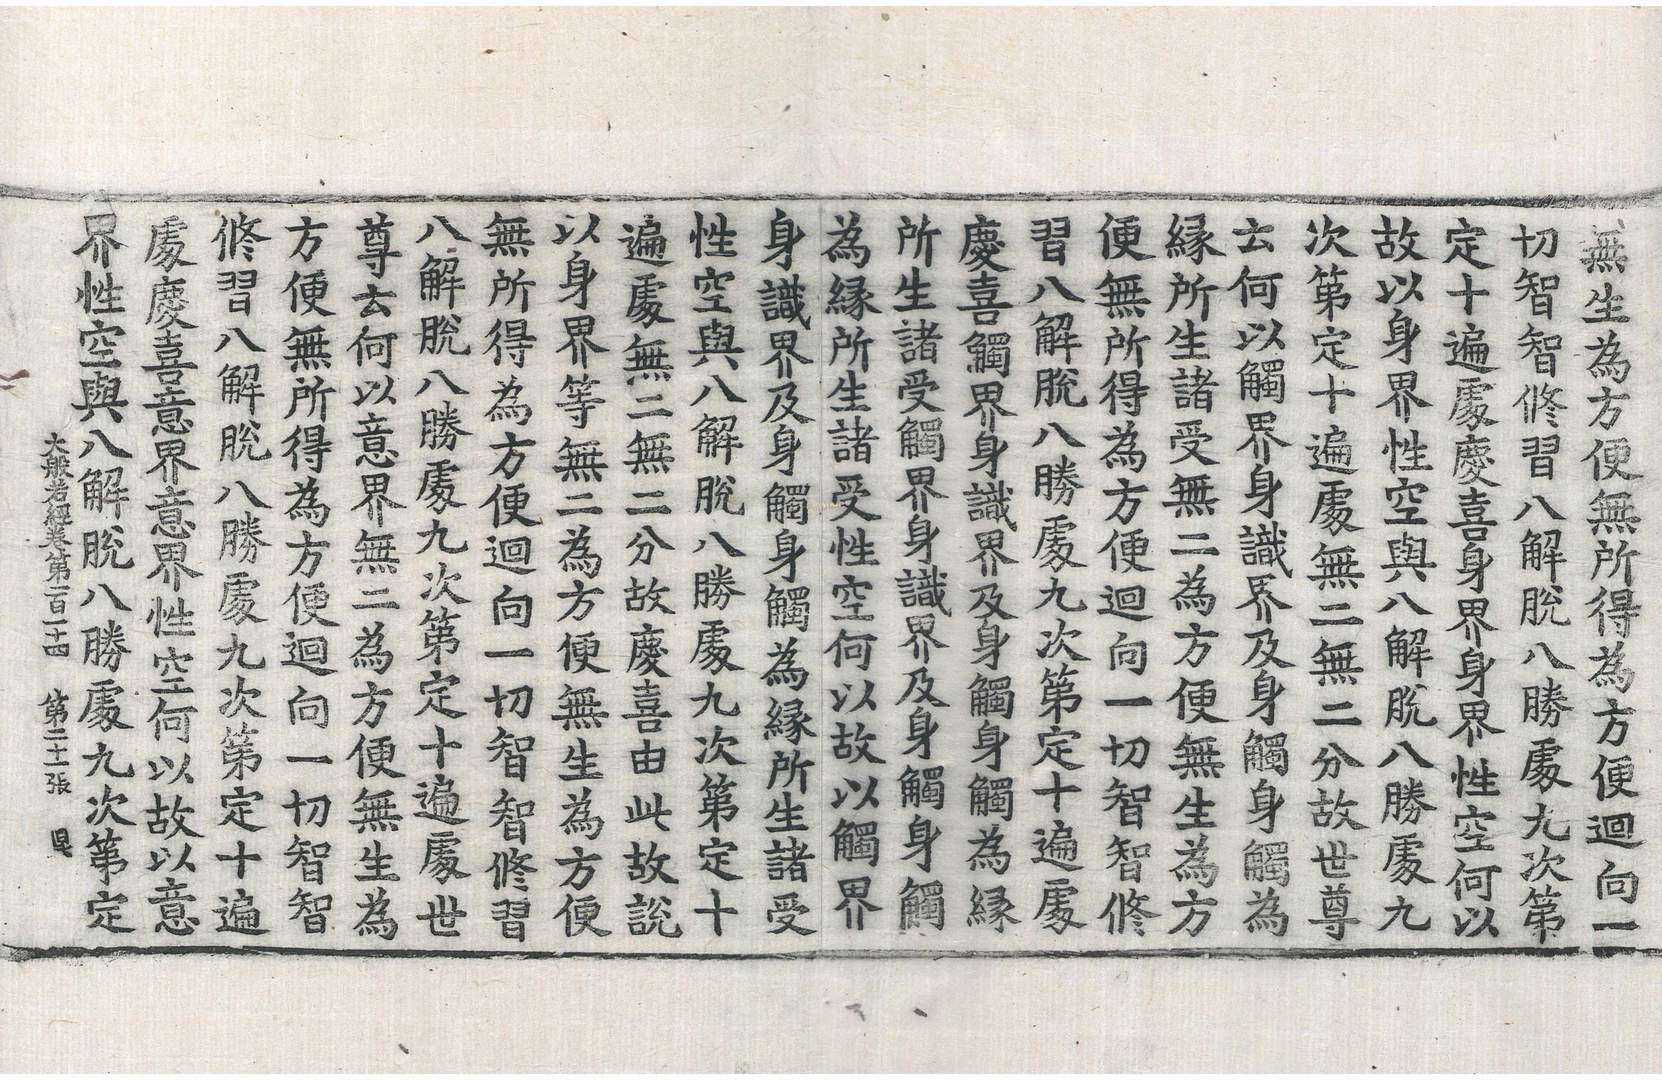 無生為方便無所得為方便迴向一
切智智修習八解脫八勝處九次第
定十遍處慶喜身界身界性空何以
故以身界性空與八解脫八勝處九
次第定十遍處無二無二分故世尊
云何以觸界身識界及身觸身觸為
緣所生諸受無二為方便無生為方
便無所得為方便迴向一切智智修
習八解脫八勝處九次第定十遍處
慶喜觸界身識界及身觸身觸為緣
所生諸受觸界身識界及身觸身觸
為緣所生諸受性空何以故以觸界
身識界及身觸身觸為緣所生諸受
性空與八解脫八勝處九次第定十
遍處無二無二分故慶喜由此故說
以身界等無二為方便無生為方便
無所得為方便迴向一切智智修習
八解脫八勝處九次第定十遍處世
尊云何以意界無二為方便無生為
方便無所得為方便迴向一切智智
修習八解脫八勝處九次第定十遍
處慶喜意界意界性空何以故以意
界性空與八解脫八勝處九次第定
大般若經卷第一百一十四 第二十一張 昃